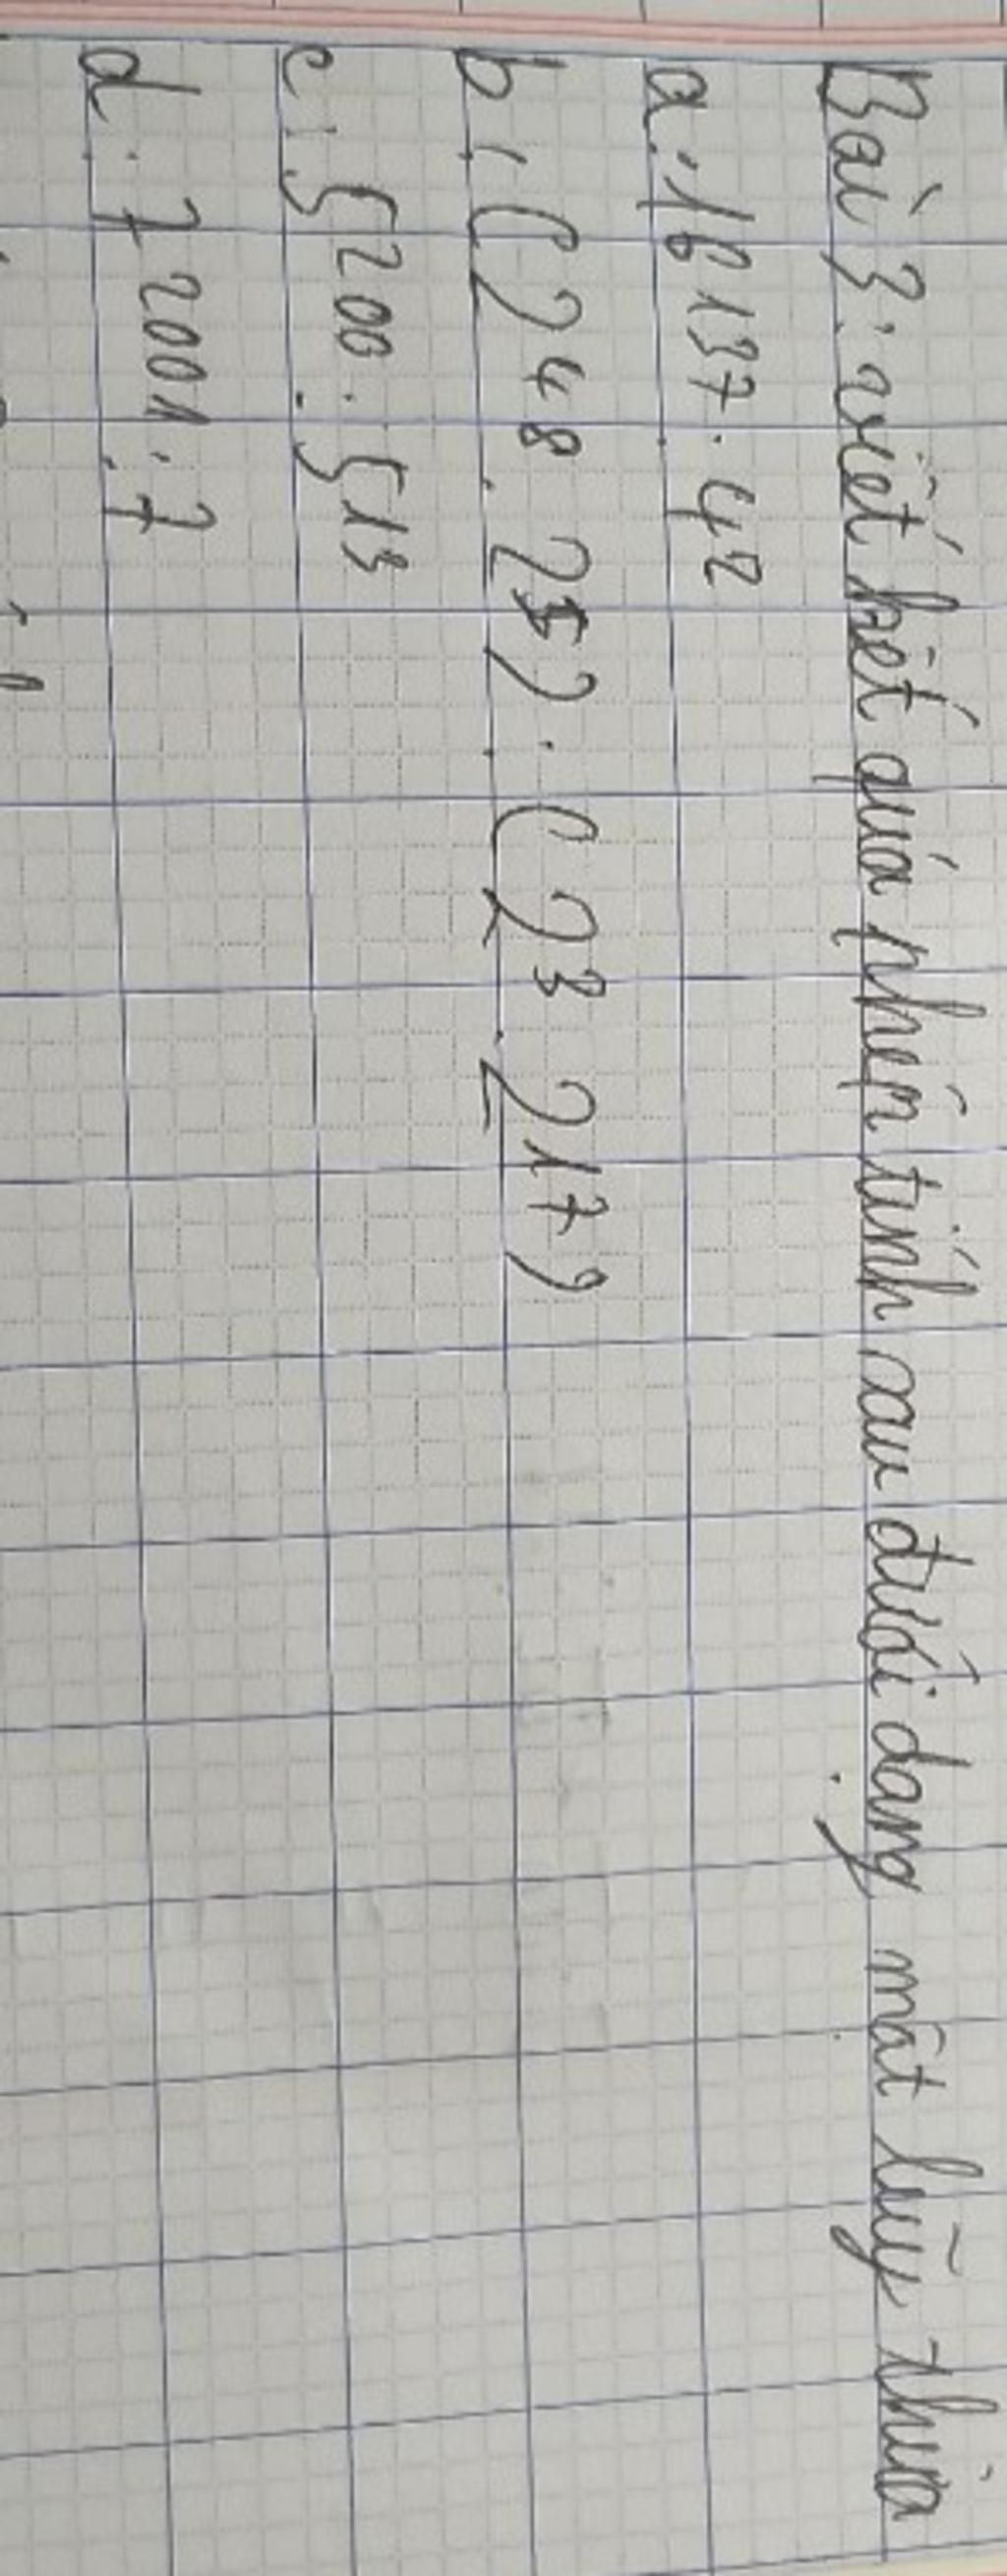 Bài 3: viết kết quả phép tính sau dưới dạng một luỹ thừa
a: 16¹³⁷ : 4²
b: (2⁴⁸ . 2⁵) . (2³ . 2¹⁷)
c: 5²⁰⁰ : 5¹³
d: 7²⁰⁰¹ : 7